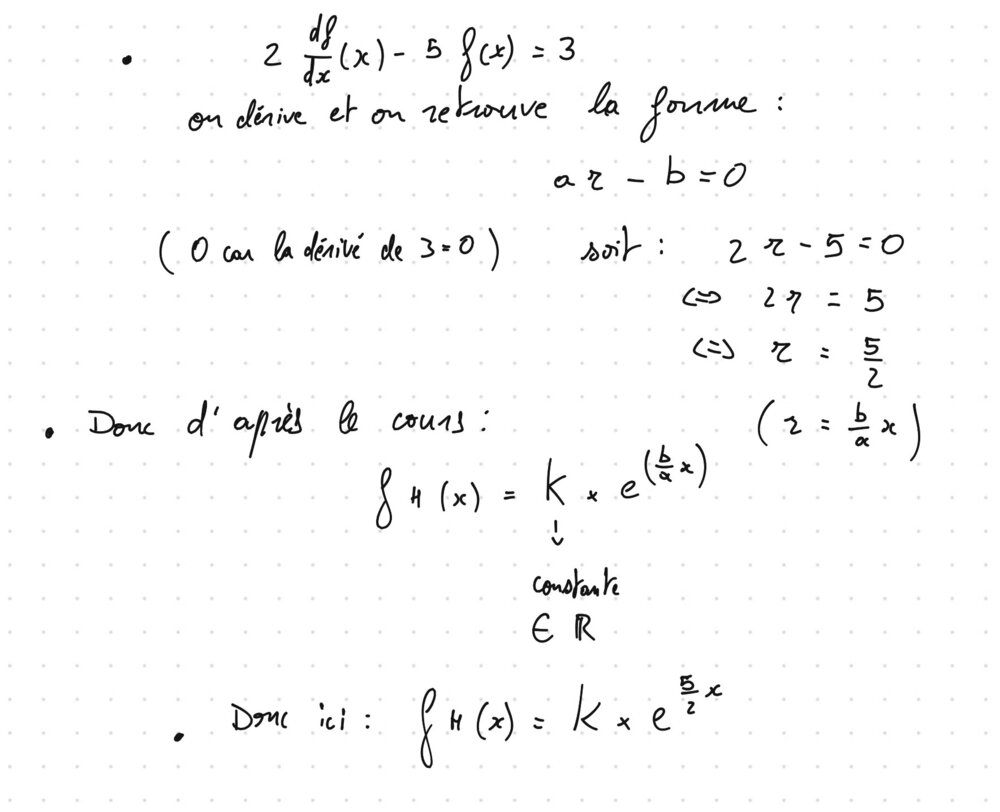 • 2 df/dx (x) - 5 f(x) = 3
on dérive et on retrouve la forme :
a r - b = 0
( 0 car la dérivé de 3 = 0 ) soit : 2 r - 5 = 0
<=> 2 r = 5
<=> r = 5/2
• Donc d'après le cours : ( r = b/a x )
f H (x) = k × e^(b/a x)
↓
constante
∈ ℝ
• Donc ici : f H (x) = k × e^5/2 x